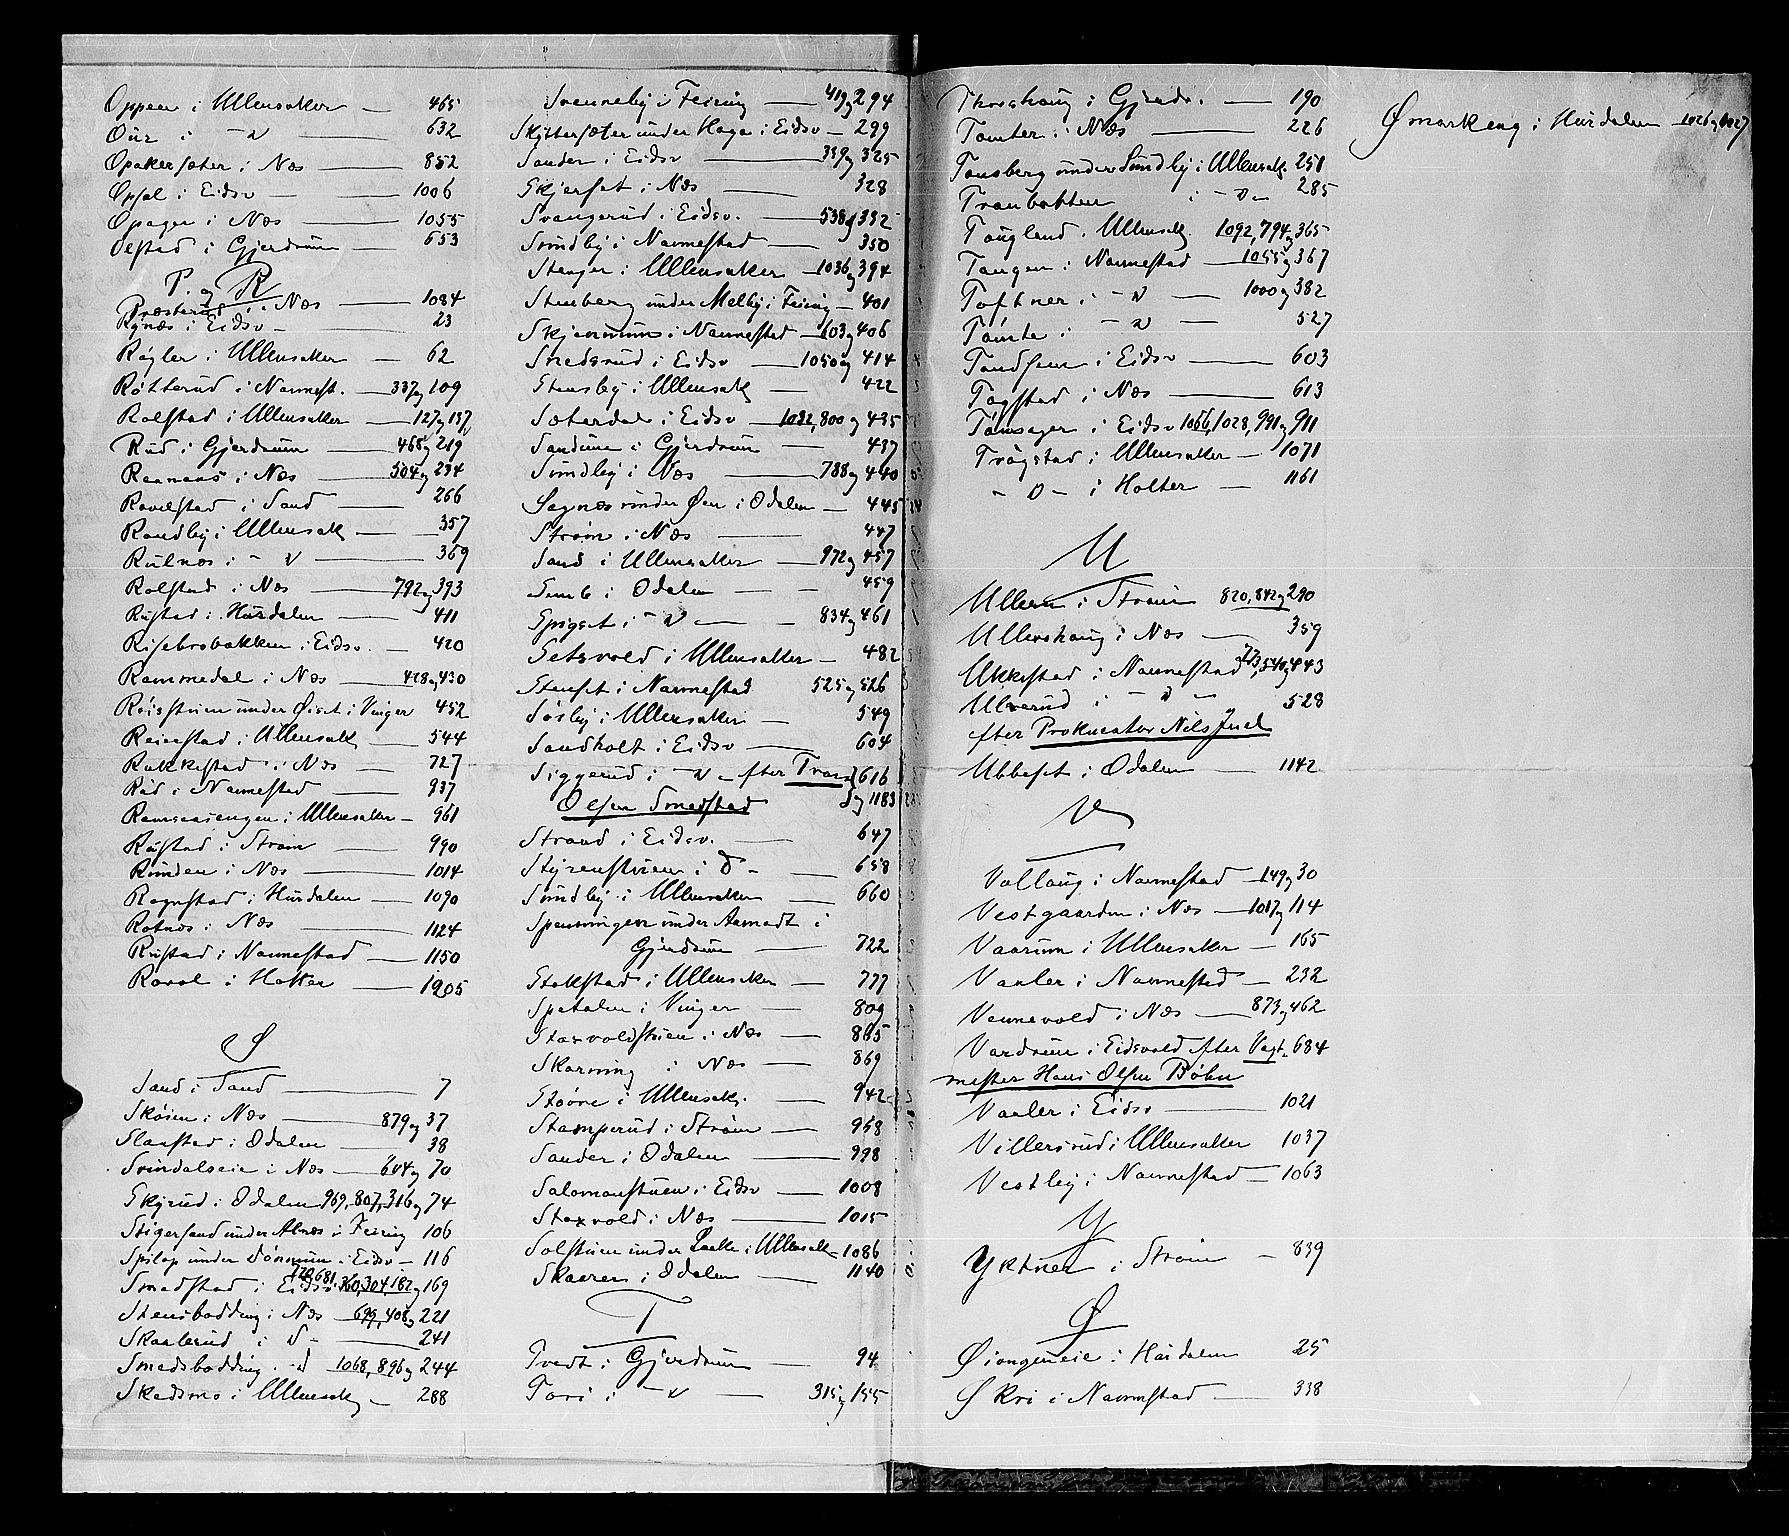 Oppen i Ullensaker — 465
Our i — " — 632
Opakersæter i Næs — 852
Opsal i Eidsv — 1006
Opagen i Næs — 1055
Olstad i Gjerdrum — 653
P. og R
Præsterud i Næs — 1084
Rynæs i Eidsv — 23
Røgler i Ullensaker — 62
Røtterud i Nannest. — 337 og 109
Rolstad i Ullensaker — 127 og 137
Rud i Gjerdrum — 468 og 219
Remaas i Næs — 504 og 234
Ravilstad i Sand — 266
Randby i Ullensak — 357
Rulnæs i — " — 369
Rolstad i Næs — 792 og 393
Rustad i Hurdalen — 411
Risebrobakken i Eidsv. — 420
Rammedal i Næs — 428 og 430
Røisstuen under Øiset i Vinger 452
Reierstad i Ullensak — 544
Rakkestad i Næs — 727
Rud i Nannestad — 937
Ramsaasengen i Ullensaker — 961
Rustad i Strøm — 990
Runden i Næs — 1014
Rognstad i Hurdalen — 1090
Rotnæs i Næs — 1124
Rustad i Nannestad — 1150
Ravol i Holter — 1205
S
Sand i Sand — 7
Skøien i Næs — 879 og 37
Slaastad i Odalen — 38
Svindalseie i Næs — 604 og 70
Skyrud i Odalen 969, 807, 316 og 74
Stigersand under Alnæs i Feiring 106
Spilop under Dønnum i Eidsv — 116
Smedstad i Eidsv 170, 681, 360, 304, 182 og 169
Stensbodding i Næs — 699, 408 og 221
Skaalerud i D — 241
Smedsbodding — " — 1068, 896 og 244
Skedsmo i Ullensak — 288
Svenneby i Feiring — 419 og 294
Skyttersæter under Haga i Eidsv — 299
Sander i Eidsv — 339 og 325
Skjerset i Næs — 328
Svangerud i Eidsv. — 538 og 332
Sundby i Nannestad — 350
Stenger i Ullensaker — 1036 og 394
Stenberg under Melby i Feiring — 401
Skjennum i Nannestad — 603 og 406
Smedsrud i Eidsv — 1050 og 414
Stensby i Ullensak — 422
Sæterdal i Eidsv — 1032, 800 og 435
Sandum i Gjerdrum — 437
Sundby i Næs — 788 og 440
Sagnæs under Øen i Odalen — 445
Strøm i Næs — 447
Sand i Ullensaker — 972 og 457
Semb i Odalen — 459
Spigset i — " — 834 og 461
Getsvold i Ullensaker — 482
Stenset i Nannestad 525 og 526
Søsby i Ullensaker — 549
Sandholt i Eidsv — 604
Siggerud i — " — efter Trond 616
Olsen Smedstad og 1183
Strand i Eidsv. — 647
Styrenstuen i D — 658
Sundby i Ullensaker — 660
Spenningen under Aamodt i
Gjerdrum — 722
Stokstad i Ullensaker — 777
Spetalen i Vinger — 809
Staxvoldstuen i Næs — 865
Skarning i Næs — 869
Støvre i Ullensak. — 942
Stamperud i Strøm — 968
Sander i Odalen — 998
Salomonstuen i Eidsv — 1008
Staxvold i Næs — 1015
Solstuen under Laake i Ullensak — 1086
Skaaren i Odalen — 1140
T
Tveit i Gjerdrum — 94
Tori i — " — 315 og 155
Throshaug i Gjerdr. — 190
Tomter i Næs — 226
Tonsberg under Sundby i Ullensak. 251
Tronbakken i — " — 285
Taugland i Ullensak. 1092, 794 og 365
Tangen i Nannestad — 1055 og 367
Toftner i — " — 1000 og 382
Tømte i — " — 527
Tandsem i Eidsv — 603
Togstad i Næs — 613
Tømsager i Eidsv 1066, 1028, 991 og 911
Trøgstad i Ullensaker — 1071
— D — i Holter — 1161
U
Ullern i Strøm 820, 842 og 290
Ullershaug i Næs — 359
Ukkestad i Nannestad 773, 540 og 443
Ulverud i — " — 528
efter Prokurator Nils Juel
Ubbeset i Odalen — 1142
V
Vallaug i Nannestad — 149 og 30
Vestgaarden i Næs — 1017 og 114
Vaarum i Ullensaker — 165
Vaaler i Nannestad — 232
Vennevold i Næs — 873 og 462
Vardrum i Eidsvold efter Vagt- 684
mester Hans Olsen Bøhn
Vaaler i Eidsv — 1021
Villersrud i Ullensaker 1037
Vestby i Nannestad — 1063
Y
Yktner i Strøm — 839
Ø
Øiongeneie i Hurdalen 25
Økri i Nannestad — 338
Ømarkeng i Hurdalen 1026 og 1027